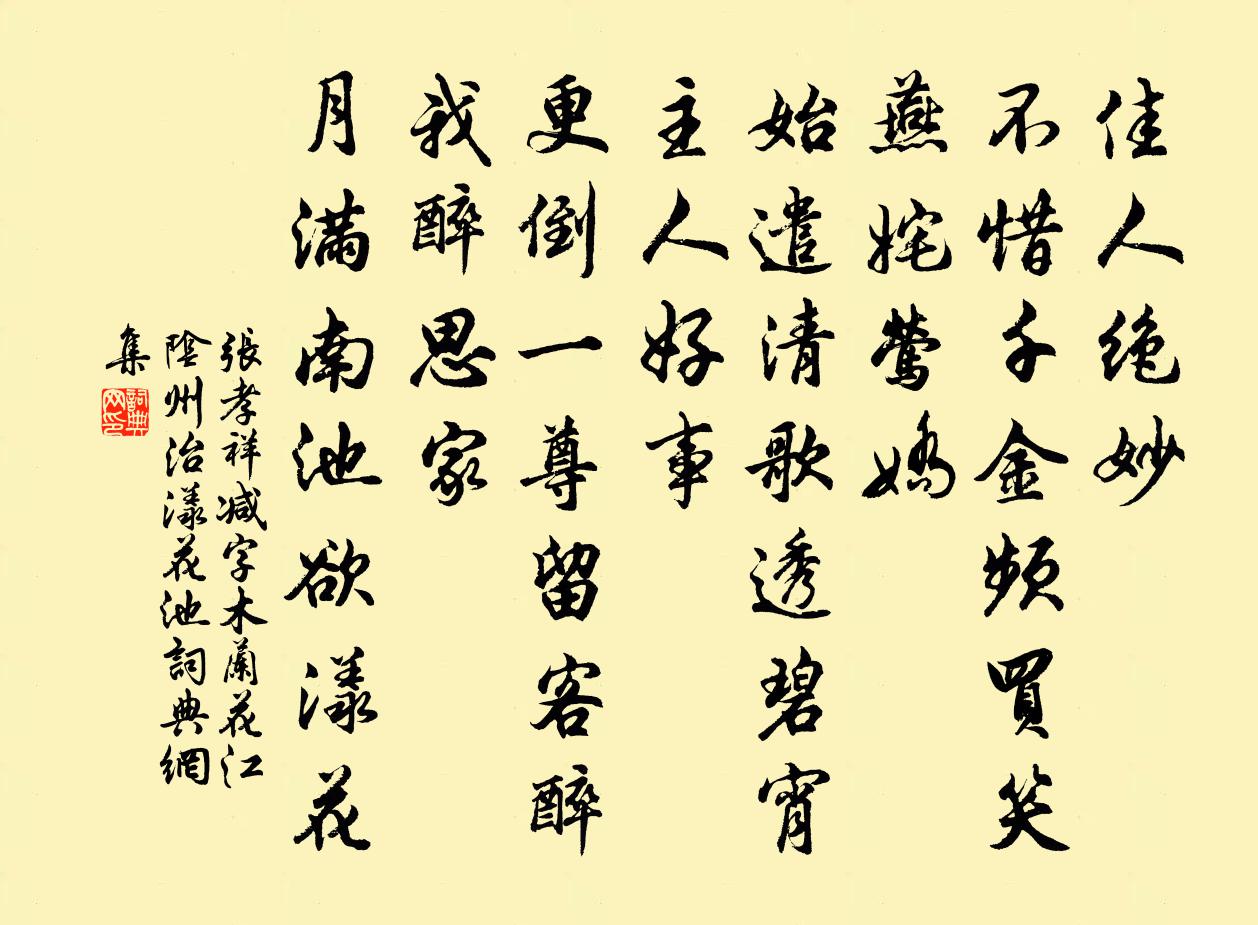 佳人绝妙
不惜千金频買笑
燕姹鶯嬌
始遣清歌透碧宵
主人好事
更倒一尊留客醉
我醉思家
月满南池欲漾花
張孝祥减字木蘭花江
陰州治漾花池詞典網
集
詞典
网印